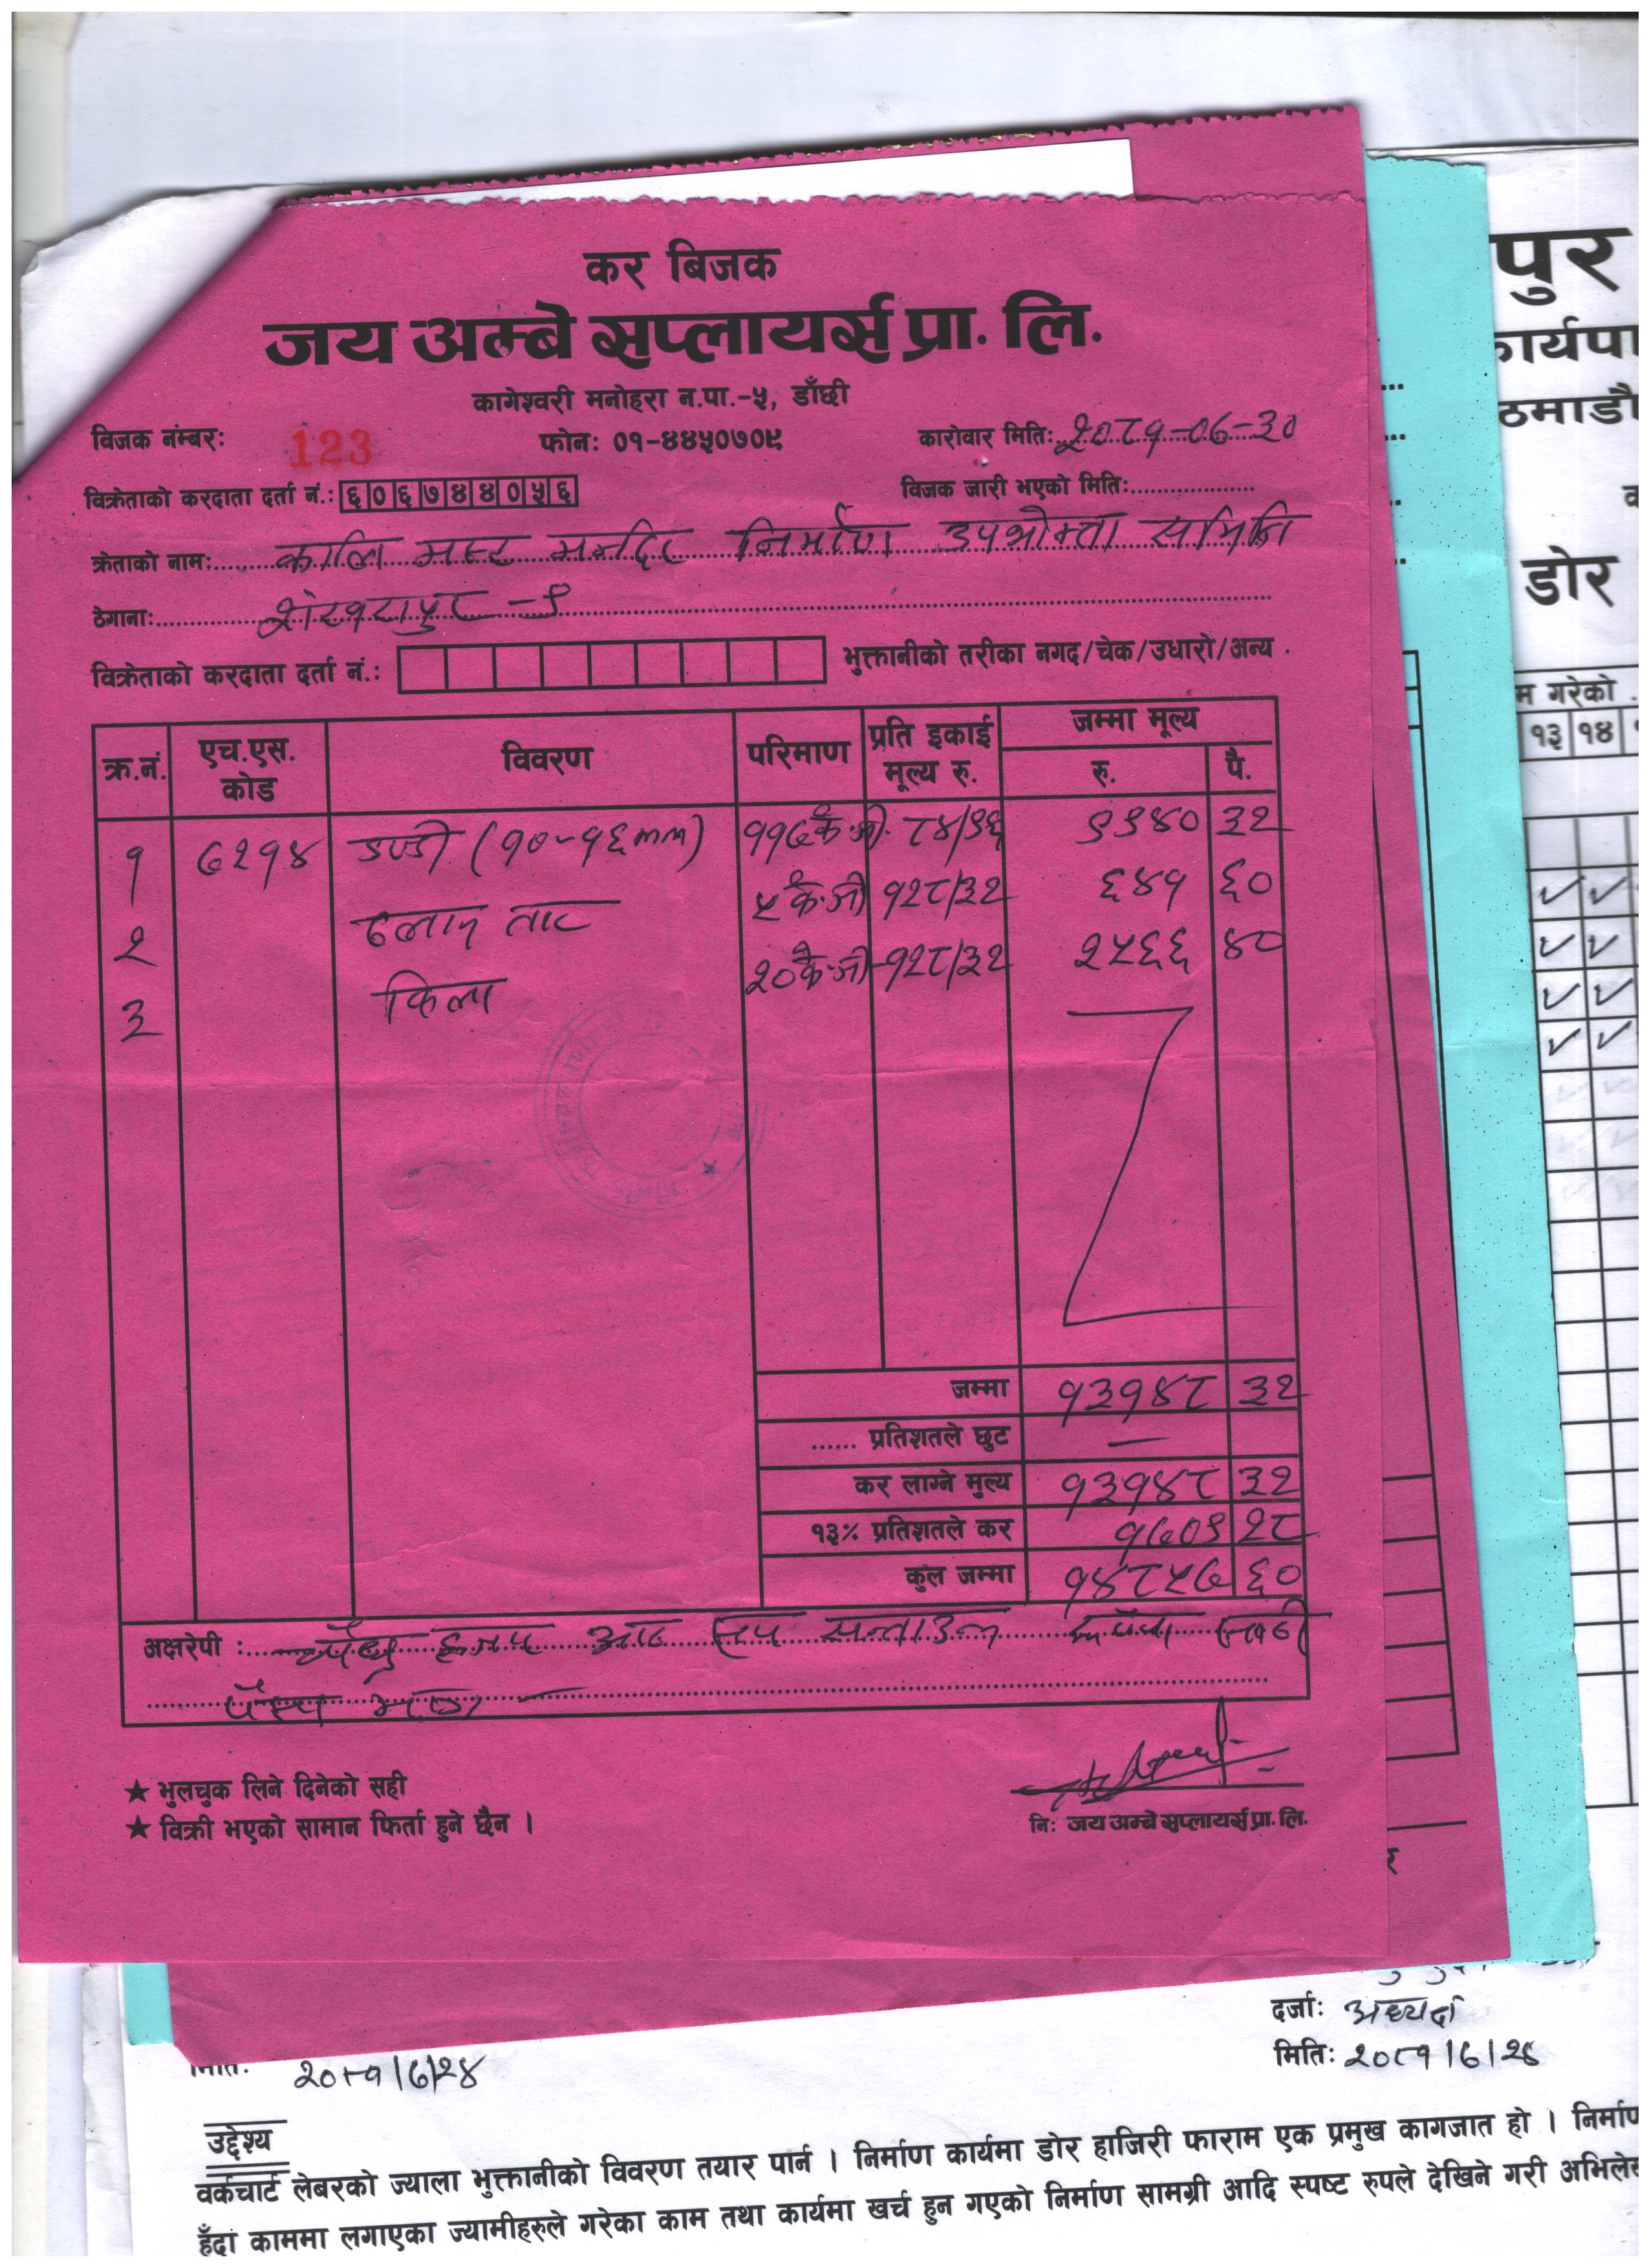 कर बिजक
जय अम्बे सप्लायर्स प्रा. लि.
कागेश्वरी मनोहरा न.पा.-५, डाँछी
विजक नंम्बर: 123 फोन: ०१-४४५०७०९ कारोवार मिति: २०८१-०७-३०
विक्रेताको करदाता दर्ता नं.: ६०६७४४०५६ विजक जारी भएको मिति:
क्रेताको नाम: कालि मष्ट मन्दिर निर्माण उपभोक्ता समिति
ठेगाना: शंखरापुर -९
विक्रेताको करदाता दर्ता नं.: भुक्तानीको तरीका नगद/चेक/उधारो/अन्य .
क्र.नं. एच.एस. कोड विवरण परिमाण प्रति इकाई मूल्य रु. जम्मा मूल्य
रु. पै.
१ ७२१४ डण्डी (१०-१६mm) ११७ के.जी. ८४/९६ ९९४० ३२
२ तार ५ के.जी १२८/३२ ६४१ ६०
३ किला २० के.जी १२८/३२ २५६६ ४०
जम्मा १३१४८ ३२
...... प्रतिशतले छुट —
कर लाग्ने मुल्य १३१४८ ३२
१३% प्रतिशतले कर १७०९ २८
कुल जम्मा १४८५७ ६०
अक्षरेपी : चौध हजार आठ सय सन्ताउन रूपैंया साठी
पैसा मात्र
★ भुलचुक लिने दिनेको सही
★ विक्री भएको सामान फिर्ता हुने छैन ।
नि: जय अम्बे सप्लायर्स प्रा. लि.
पुर
कार्यपा
ठमाडौ
डोर
म गरेको .
१३ १४
दर्जा: अध्यक्ष
मिति: २०८१/७/२४
मिति: २०८१/७/२४
उद्देश्य
वर्कचार्ट लेबरको ज्याला भुक्तानीको विवरण तयार पार्न । निर्माण कार्यमा डोर हाजिरी फाराम एक प्रमुख कागजात हो । निर्माण
हुँदा काममा लगाएका ज्यामीहरुले गरेका काम तथा कार्यमा खर्च हुन गएको निर्माण सामग्री आदि स्पष्ट रुपले देखिने गरी अभिलेख